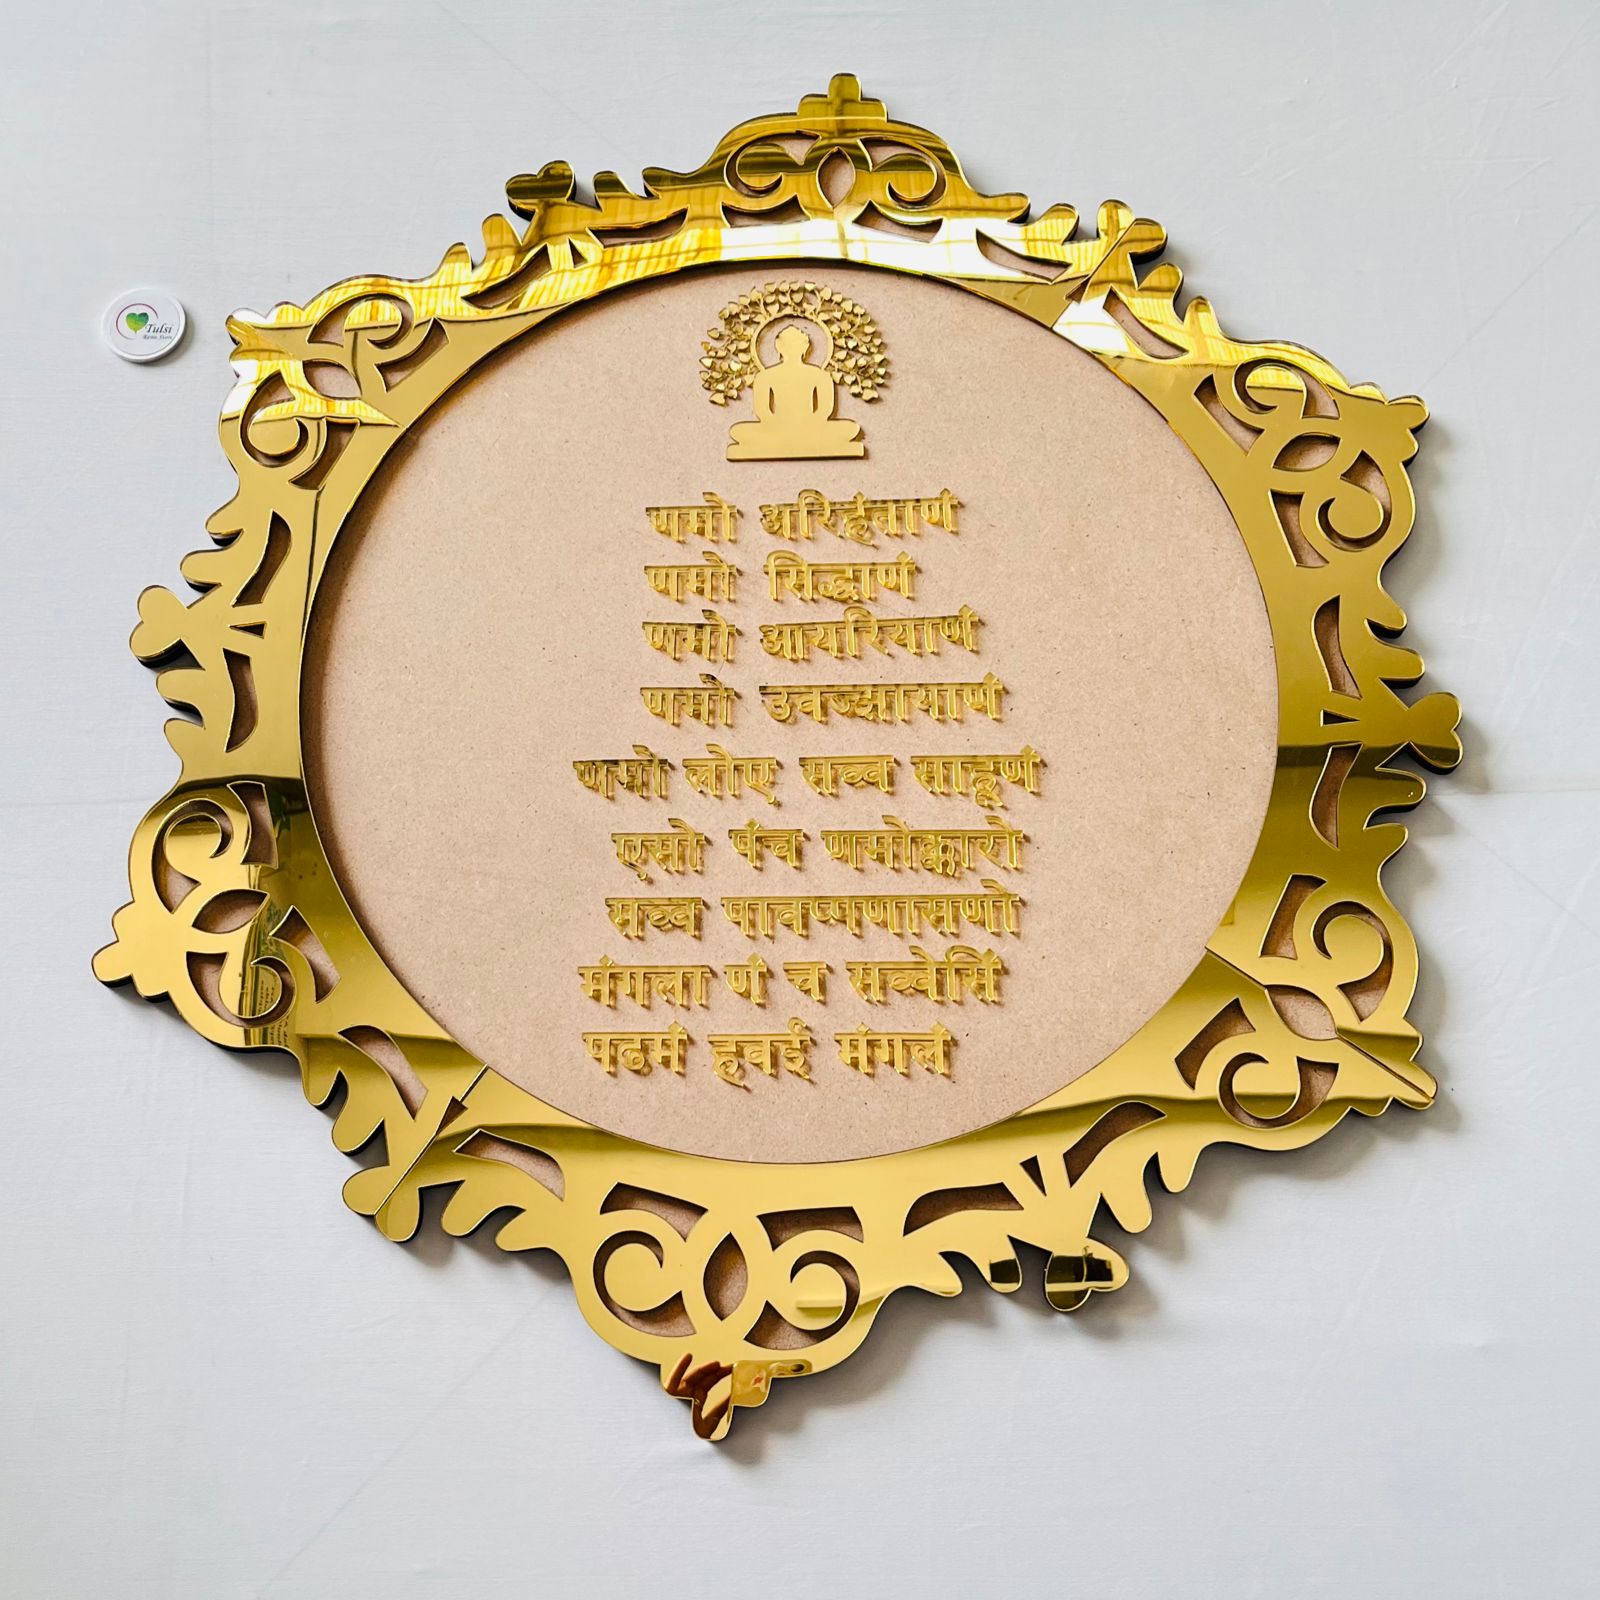 Tulsi
Resin Store
णमो अरिहंताणं
णमो सिद्धाणं
णमो आयरियाणं
णमो उवज्झायाणं
णमो लोए सव्व साहूणं
एसो पंच णमोक्कारो
सव्व पावप्पणासणो
मंगला णं च सव्वेसिं
पढमं हवई मंगलं